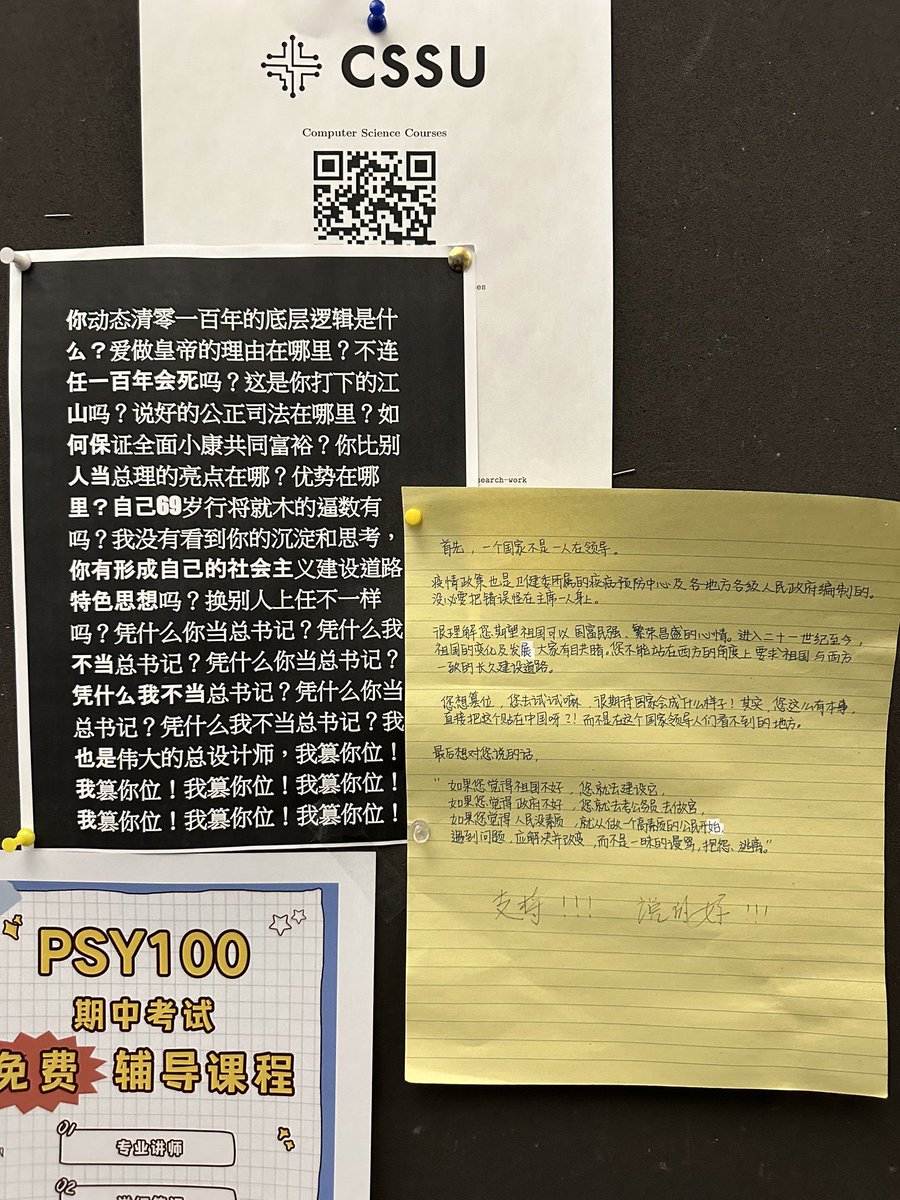 CSSU
Computer Science Courses
es
search-work
你动态清零一百年的底层逻辑是什
么？爱做皇帝的理由在哪里？不连
任一百年会死吗？这是你打下的江
山吗？说好的公正司法在哪里？如
何保证全面小康共同富裕？你比别
人当总理的亮点在哪？优势在哪
里？自己69岁行将就木的逼数有
吗？我没有看到你的沉淀和思考，
你有形成自己的社会主义建设道路
特色思想吗？换别人上任不一样
吗？凭什么你当总书记？凭什么我
不当总书记？凭什么你当总书记？
凭什么我不当总书记？凭什么你当
总书记？凭什么我不当总书记？我
也是伟大的总设计师，我篡你位！
我篡你位！我篡你位！我篡你位！
我篡你位！我篡你位！我篡你位！
首先，一个国家不是一人在领导。
疫情政策也是卫健委所属的疾病预防中心及各地方各级人民政府编制的。
没必要把错误怪在主席一人身上。
很理解您期望祖国可以国富民强、繁荣昌盛的心情。进入二十一世纪至今，
祖国的变化及发展大家有目共睹。您不能站在西方的角度上要求祖国与西方
一致的长久建设道路。
您想篡位，您去试试嘛，很期待国家会成什么样子！其实，您这么有本事，
直接把这个贴在中国呀？！而不是在这个国家领导人们看不到的地方。
最后想对您说的话，
“如果您觉得祖国不好，您就去建设它，
如果您觉得政府不好，您就去考公务员去做官，
如果您觉得人民没素质，就从做一个高素质的公民开始，
遇到问题，应解决并改变，而不是一味的谩骂，抱怨、逃离。”
支持!!! 说的好!!!
PSY100
期中考试
免费 辅导课程
01
专业讲师
02